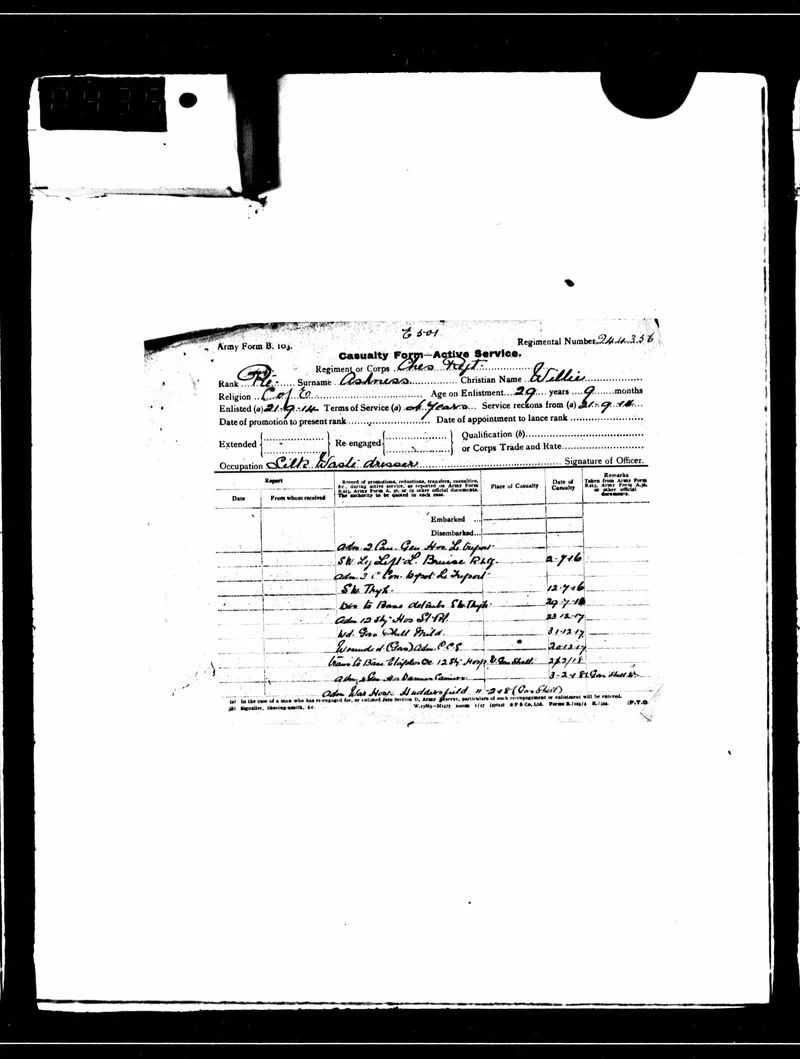 E 501
Army Form B. 103. Regimental Number 244356
Casualty Form—Active Service.
Regiment or Corps Ches Regt.
Rank Pte. Surname Ashness Christian Name Willie
Religion C of E Age on Enlistment 29 years 9 months
Enlisted (a) 21.9.14 Terms of Service (a) 4 Years Service reckons from (a) 21.9.14
Date of promotion to present rank Date of appointment to lance rank
Extended Re-engaged Qualification (b)
or Corps Trade and Rate
Occupation Silk Waste dresser Signature of Officer.
Report
Date From whom received
Record of promotions, reductions, transfers, casualties, &c., during active service, as reported on Army Form B.213, Army Form A. 36, or in other official documents. The authority to be quoted in each case.
Place of Casualty
Date of Casualty
Remarks
Taken from Army Form B.213, Army Form A.36, or other official documents.
Embarked
Disembarked
Adm. 2 Can. Gen Hos. Le Treport
S.W. Leg Left L. Bruise R Leg. 2-7-16
Adm. 3 C Con. Depot Le Treport
S.W. Thigh. 12-7-16
Dis to Base details S.W. Thigh 29-7-16
Adm 12 Sty Hos St Pol. 23-12-17
Wd. Gas Shell Mild. 31-12-17
Wounded (Gas) Adm. C.C.S " 20-12-17
trans to Base 12 Sty Hosp W. Gas Shell 2/2/18
Adm. Gen. Hos Dannes Camiers 3-2-18 Gas Shell W.
Adm War Hosp. Huddersfield 11-2-18 (Gas Shell)
(a) In the case of a man who has re-engaged for, or enlisted into Section D, Army Reserve, particulars of such re-engagement or enlistment will be entered.
(b) Signaller, Shoeing-smith, &c. (P.T.O.